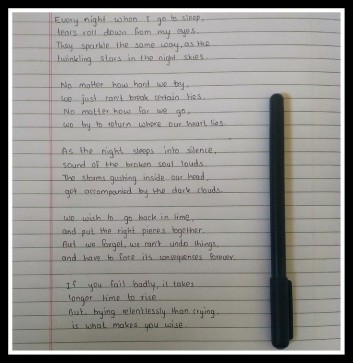 Every night when I go to sleep,
tears roll down from my eyes.
They sparkle the same way, as the
twinkling stars in the night skies.
No matter how hard we try,
we just can't break certain ties.
No matter how far we go,
we try to return where our heart lies.
As the night sleeps into silence,
sound of the broken soul louds.
The storms gushing inside our head,
get accompanied by the dark clouds.
We wish to go back in time,
and put the right pieces together.
But we forget, we can't undo things,
and have to face its consequences forever.
If you fail badly, it takes
longer time to rise
But, trying relentlessly than crying,
is what makes you wise.